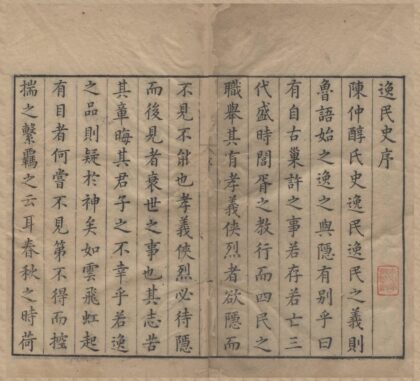 逸民史序
陳仲醇氏史逸民逸民之義則
魯語始之逸之與隱有别乎曰
有自古巢許之事若存若亡三
代盛時閭胥之教行而四民之
職舉其有孝義俠烈者欲隱而
不見不能也孝義俠烈必待隱
而後見者衰世之事也其志苦
其章晦其君子之不幸乎若逸
之品則疑於神矣如雲飛虹起
有目者何嘗不見第不得而控
揣之繫羈之云耳春秋之時荷